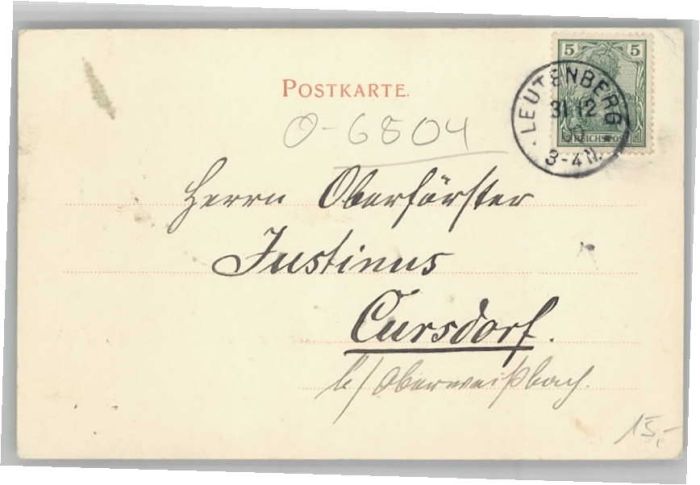 POSTKARTE.
5 5
REICHSPOST
LEUTENBERG
31 12
3-4 N.
O-6804
Herrn Oberförster
Justinus
Cursdorf.
b/ Oberweißbach.
15,-